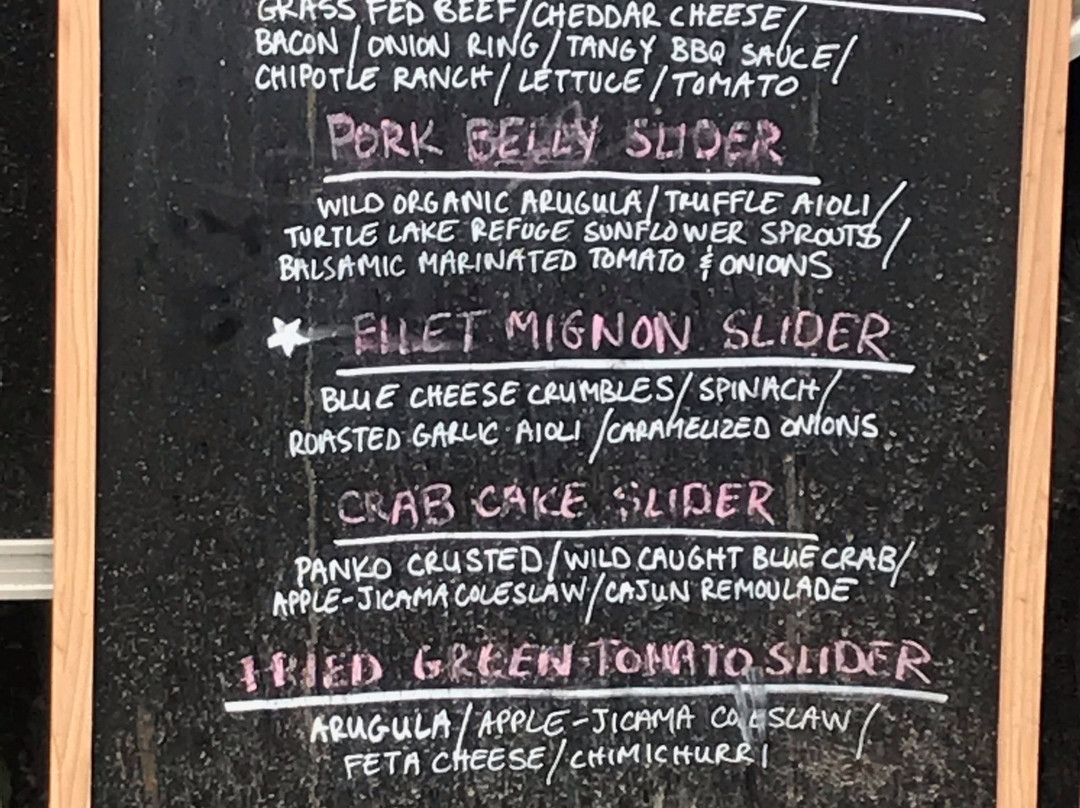 GRASS FED BEEF/CHEDDAR CHEESE/
BACON/ONION RING/TANGY BBQ SAUCE/
CHIPOTLE RANCH/LETTUCE/TOMATO
PORK BELLY SLIDER
WILD ORGANIC ARUGULA/TRUFFLE AIOLI/
TURTLE LAKE REFUGE SUNFLOWER SPROUTS/
BALSAMIC MARINATED TOMATO & ONIONS
FILLET MIGNON SLIDER
BLUE CHEESE CRUMBLES/SPINACH/
ROASTED GARLIC AIOLI/CARAMELIZED ONIONS
CRAB CAKE SLIDER
PANKO CRUSTED/WILD CAUGHT BLUE CRAB/
APPLE-JICAMA COLESLAW/CAJUN REMOULADE
FRIED GREEN TOMATO SLIDER
ARUGULA/APPLE-JICAMA COLESLAW/
FETA CHEESE/CHIMICHURRI